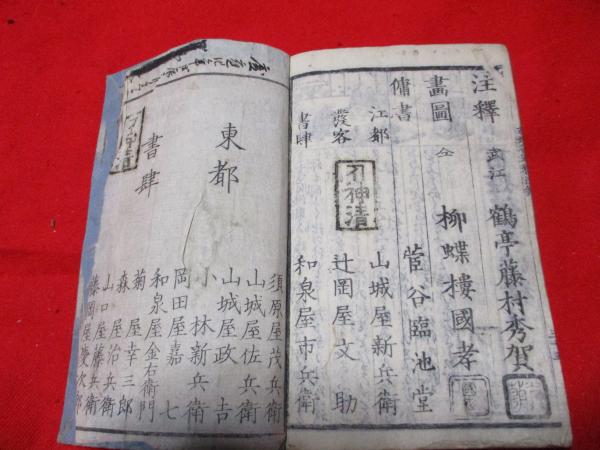 注釋 武江 鶴亭藤村秀賀
畫圖 仝 柳蝶樓國孝
傭書 菅谷臨池堂
江都 山城屋新兵衛
發客 辻岡屋文助
書肆 和泉屋市兵衛
東都
書肆
須原屋茂兵衛
山城屋佐兵衛
山城屋政吉
小林新兵衛
岡田屋嘉七
和泉屋金右衛門
菊屋幸三郎
森屋治兵衛
山口屋藤兵衛
藤岡屋慶次郎